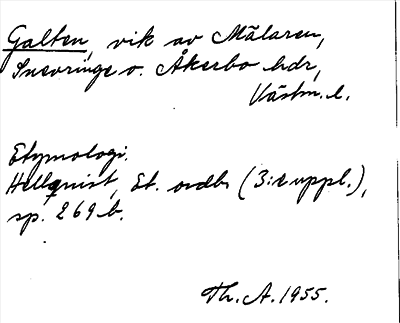 Galten, vik av Mälaren,
Snevringe o. Åkerbo hdr,
Västm. l.
Etymologi.
Hellqvist, Et. ordb. (3:e uppl.),
sp. 269 b.
Th. A. 1955.